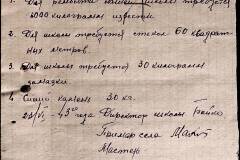 1. Для ремонта школы требуется
6000 килограмм извести.
2. Для школы требуется стекол 60 квадрат-
ных метров.
3. Для школы требуется 30 килограмм
4. 30 кг.
43 года Директор школы Бойко
села
Мастер